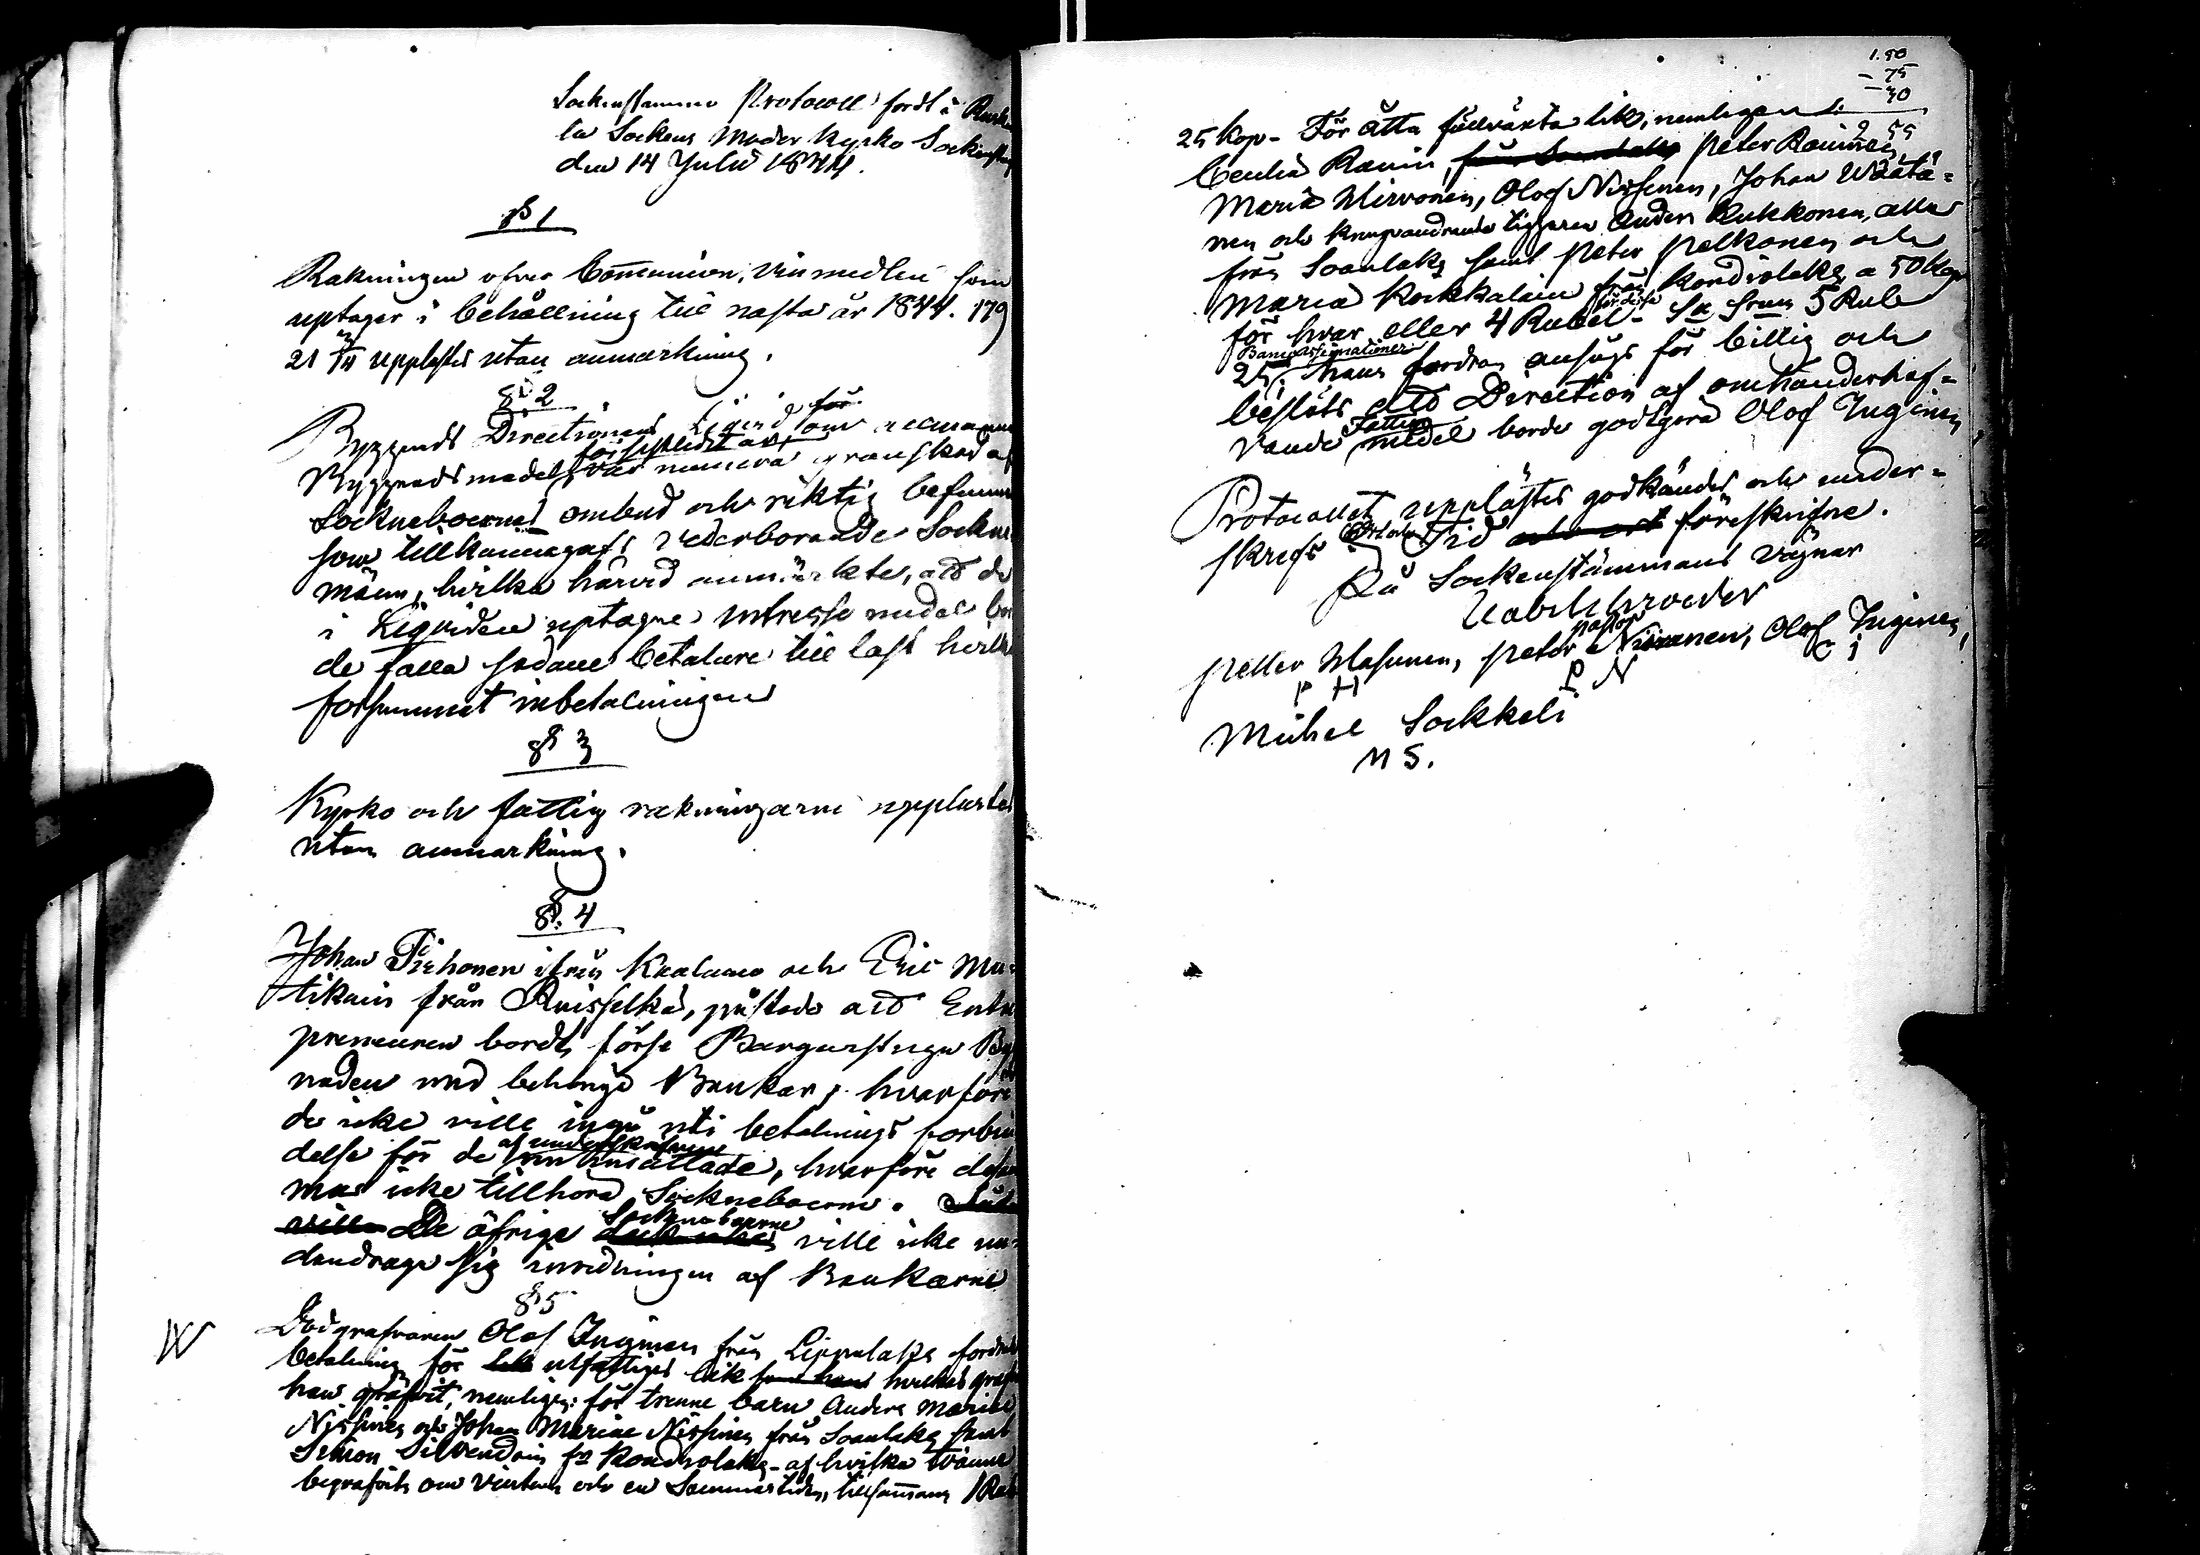 Sockenstämmo Protocoll fördt i Ruske
la Sockens Moder Kyrko Sockenstug
den 14 Julii 1844.
§ 1
Räkningen öfver Com̅union, Vin medlen som
uptager i behållning till nästa år 1844. 179
21 3/4 upplästes utan anmärkning.
§ 2
Byggnads Directionens för om
Byggnadsmedel, var numera granskad af
Socknеboernes ombud och riktig befunn
som tillkännagafs vederbörande Sockne
männ, hvilka härvid anmärkte, att de
i Liqviden uptagne intresse medel bor
de falla sådane betalare till last hvilka
försummat inbetalningen
§ 3
Kyrko och fattig räkningarne upplästes
utan anmärkning.
§. 4
Johan Pirhonen ifrån Kaalamo och Eric Mu=
tikain från Ruisselkä, påstodo att Entre
preneuren bordt förse Borgarstugu By
naden med behörige Bänkar, hvarföre
de icke ville ingå uti betalnings förbin
delse för de af underskrifvne
, hvarföre dessa
mas icke tillhöra Socknеboerne.
De öfrige Socknеboerne ville icke un=
dandraga sig inredningen af Bänkarne
§ 5
Dödgrafvaren Olof Inginen från Lippulaks fordrade
betalning för utfattiges lik hvilkas graf
han gräfvit, nemligen: för trenne barn Anders Maria
Nissinen och Johan Mariae Nissinen från Soanlaks samt
Simon Silvendoin fr Kondiolaks - af hvilka tvänne
begrafvits om Vintern och en Sommartiden, tillsam̅ans 1 Rub
W
1.50
- 75
- 30
2 55
25 Kop - För åtta fullväxta lik, nemligen:
Cecilia Ranin, Peter Räninen
Maria Hirvonen, Olof Nissinen, Johan Wäätä=
nen och kringvandrande tiggaren Anders Kukkonen, alla
från Soanlaks samt Peter Pelkonen och
Maria Kockkalain från Kondiolaks a 50 Kop
för hvar eller 4 Rubel - för desse 5 Rub
Bancoassignationer
25, hans fordran ansågs för billig och
beslöts att Direction af omhänderhaf=
vande Fattig medel borde godtgöra Olof Inginen
Protocollet upplästes godkändes och under=
skrefs Ort och Tid föreskrifne.
På Sockenstämmans vägnar
Gabr. Schroeder
pastor
Petter Hasunen, Peter Niiranen, Olof Inginen,
P H P N O I
Michel Sockkeli
M S.